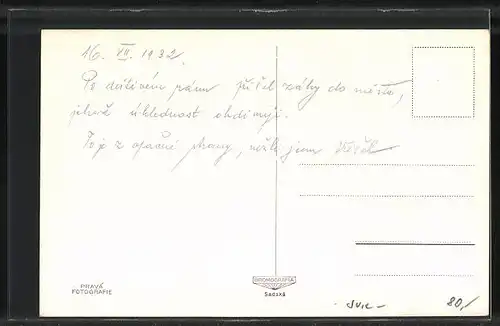 16. VII. 1932.
Po deštivém ránu přišel záhy do města,
jehož úhlednost obdivuji.
To je z opačné strany, nežli jsem
PRAVÁ
FOTOGRAFIE
BROMOGRAFIA
Sadská
80,-